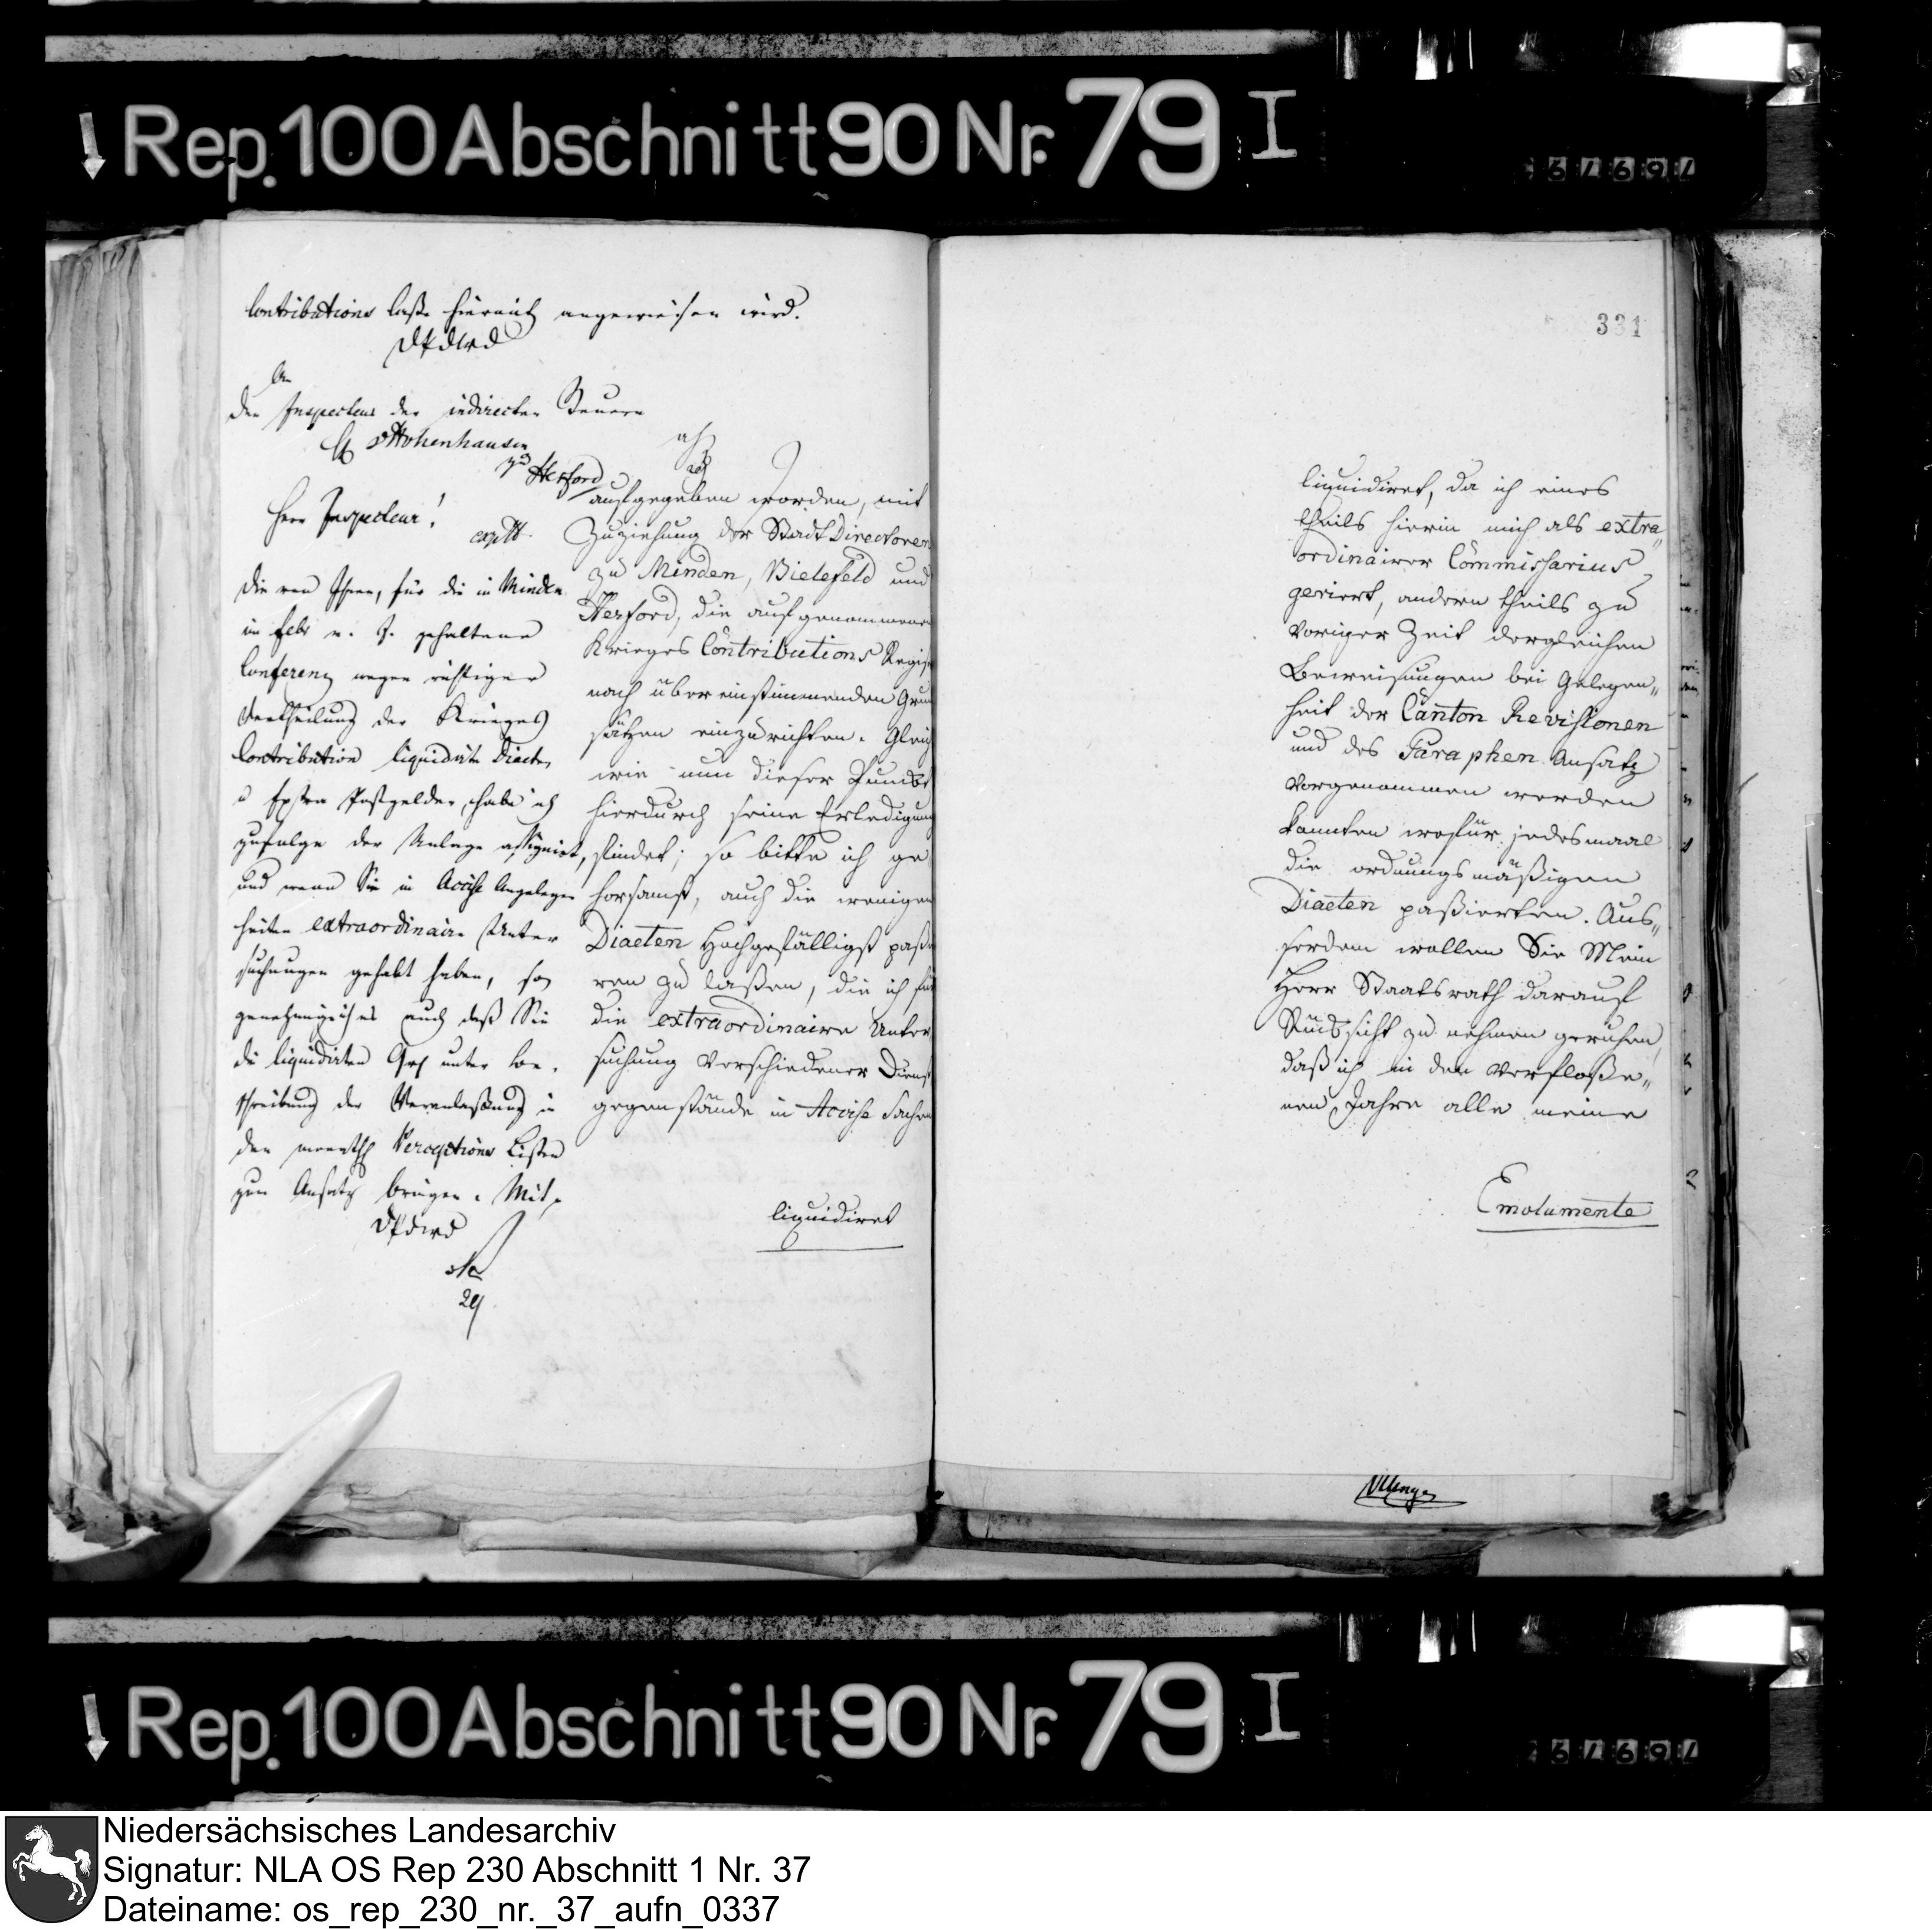 Rep. 100 Abschnitt 90 Nr. 79 I
79179
Contributions Caße hierauf angewiesen wird.
An
den Inspecteur der indirecten Steuern
H v Hohenhausen
zu Herford
Herr Inspecteur!
Die von Ihnen, für die in Minden
im Febr v. J. gehaltene
Conferenz wegen richtiger
Vertheilung der Krieges
Contribution liquidirte Diaeten
u Extra Postgelder, habe ich
zufolge der Anlage assignirt,
und wenn Sie in Accise Angelegen
heiten extraordinaire Unter
suchungen gehabt haben, so
genehmige ich es auch daß Sie
die liquidirten unter Be-
schreibung der Veranlaßung in
den monatl Perceptions Listen
zum Ansatz bringen. Mit
29
aufgegeben worden, mit
Zuziehung der Stadt Directoren
zu Minden, Bielefeld und
Herford, die aufgenommenen
Krieges Contributions Regis
nach übereinstimmenden Grun
sätzen einzurichten. Gleich
wie nun dieser Punct
hierdurch seine Erledigung
findet; so bitte ich ge
horsamst, auch die wenigen
Diaeten Hochgefälligst paßi
ren zu laßen, die ich für
die extraordinaire Unter
suchung verschiedener Dienst
gegenstände in Accise Sachen
liquidiret
331
liquidiret, da ich eines
theils hierin mich als extra„
ordinairer Commissarius
geriert, andern theils zu
voriger Zeit dergleichen
Bereisungen bei Gelegen„
heit der Canton Revisionen
und des Paraphen Ansatz
vorgenommen werden
konnten wofür jedesmaal
die ordnungsmäßigen
Diaeten paßierten. Aus„
serdem wollen Sie Mein
Herr Staatsrath darauf
Rücksicht zu nehmen geruhen,
daß ich in den verfloße„
nen Jahre alle meine
Emolumente
Rep. 100 Abschnitt 90 Nr. 79 I
79179
Niedersächsisches Landesarchiv
Signatur: NLA OS Rep 230 Abschnitt 1 Nr. 37
Dateiname: os_rep_230_nr._37_aufn_0337